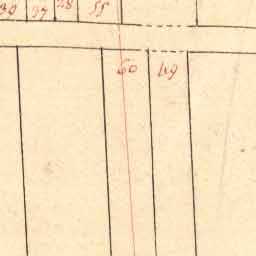 30 27 28 55
60 49